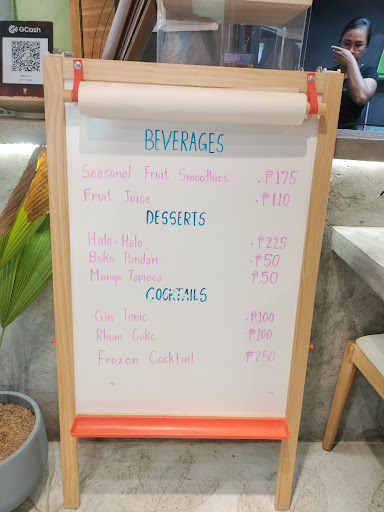 GCash
BEVERAGES
Seasonal Fruit Smoothies . ₱175
Fruit Juice . ₱110
DESSERTS
Halo-Halo . ₱225
Buko Pandan . ₱50
Mango Tapioca . ₱50
COCKTAILS
Gin Tonic . ₱100
Rhum Coke . ₱100
Frozen Cocktail . ₱250